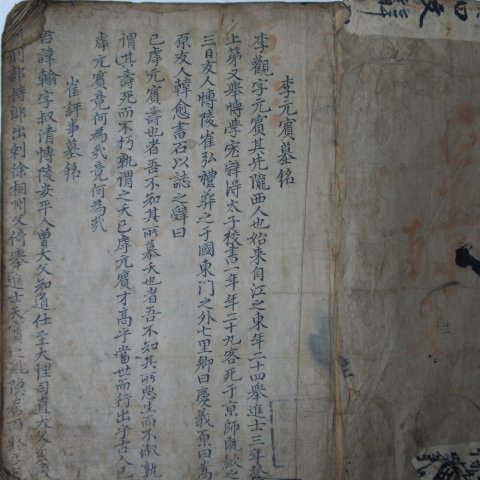 李元賓墓銘
李觀字元賓其先隴西人也始来自江之東年二十四舉進士三年登
上第又舉博學宏辭得太子校書一年年二十九客死于京師既斂之
三日友人博陵崔弘禮葬之于國東門之外七里鄉曰慶義原曰嵩
原友人韓愈書石以誌之辭曰
已虖元賓壽也者吾不知其所慕夭也者吾不知其所惡生而不淑孰
謂其壽死而不朽孰謂之夭已虖元賓才高乎當世而行出乎古人已
虖元賓竟何為哉竟何為哉
崔評事墓銘
君諱翰字叔清博陵安平人曾大父知道仕至大理司直大父
刑部侍郎出刺徐相州父倚舉進士天寶之亂隱居